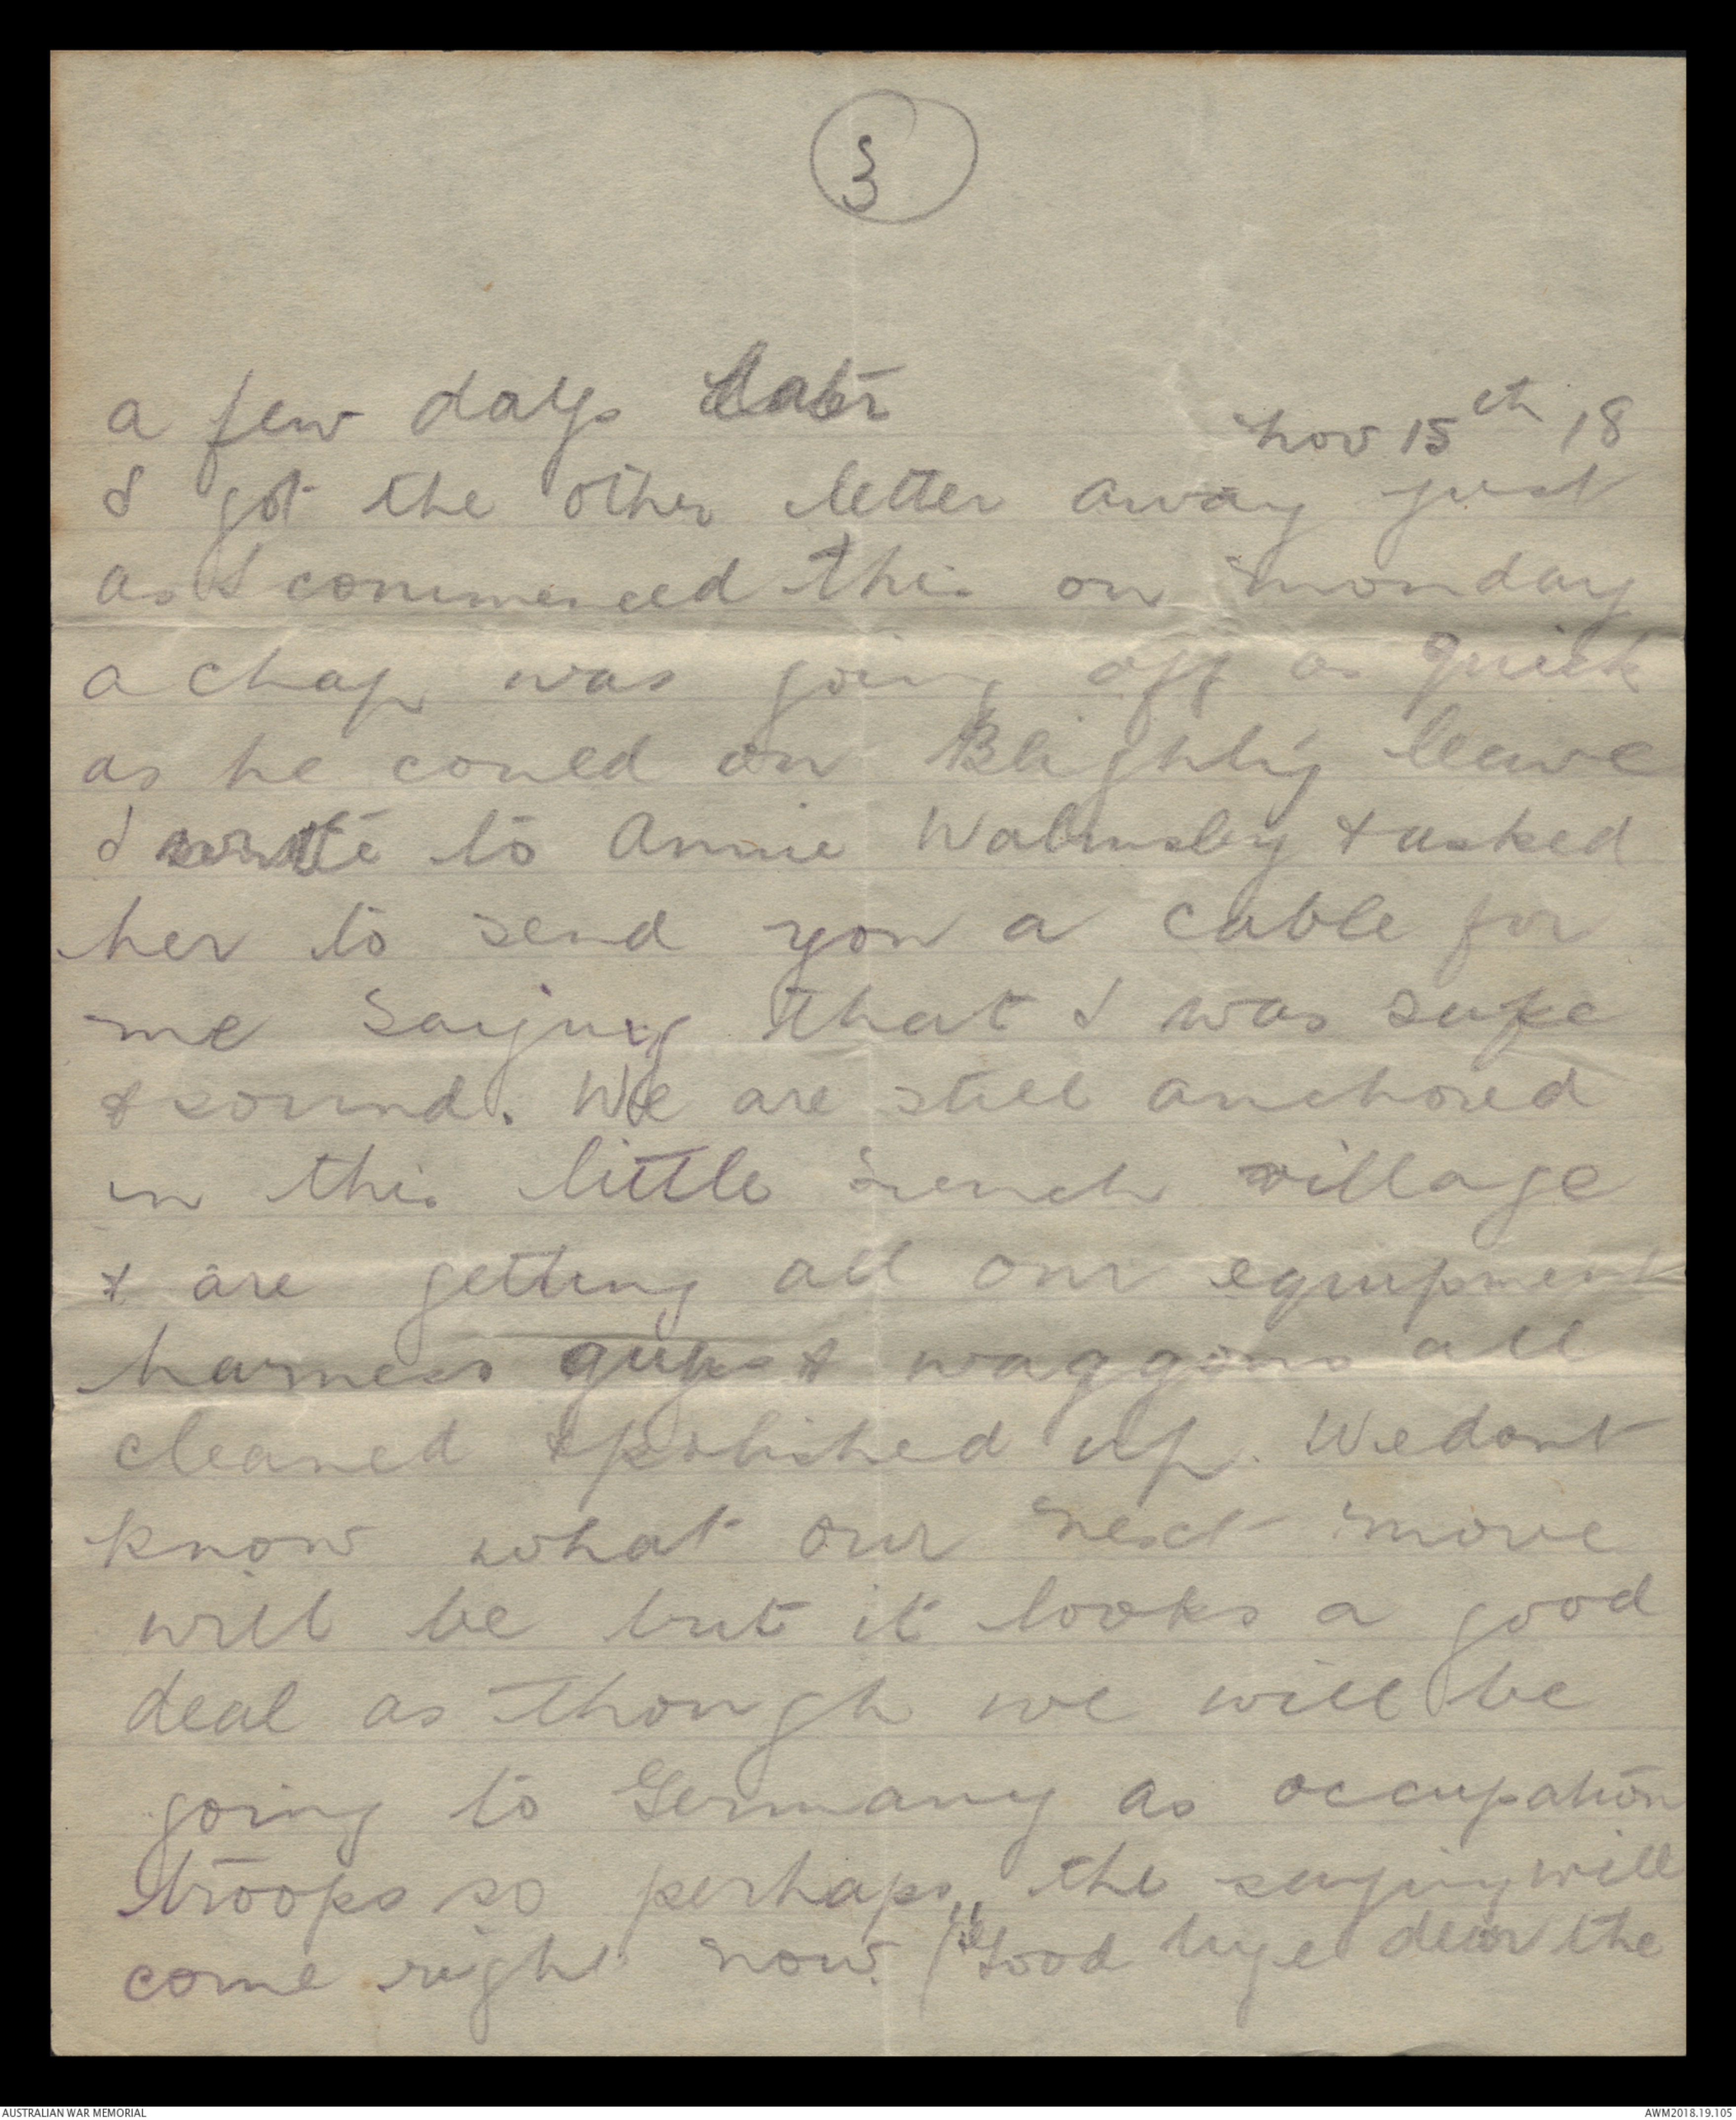 3
a few days later
Nov 15th 18
I got the other letter away just
as I commenced this on Monday
a chap was going off as quick
as he could on Blighty leave
I wrote to Annie Walmsley & asked
her to send you a cable for
me saying that I was safe
& sound. We are still anchored
in this little French village
& are getting all our equipment
harness guns & waggons all
cleaned & polished up. We dont
know what our next move
will be but it looks a good
deal as though we will be
going to Germany as occupation
troops so perhaps, the saying will
come right now. ("Good bye dear the
AUSTRALIAN WAR MEMORIAL
AWM2018.19.105